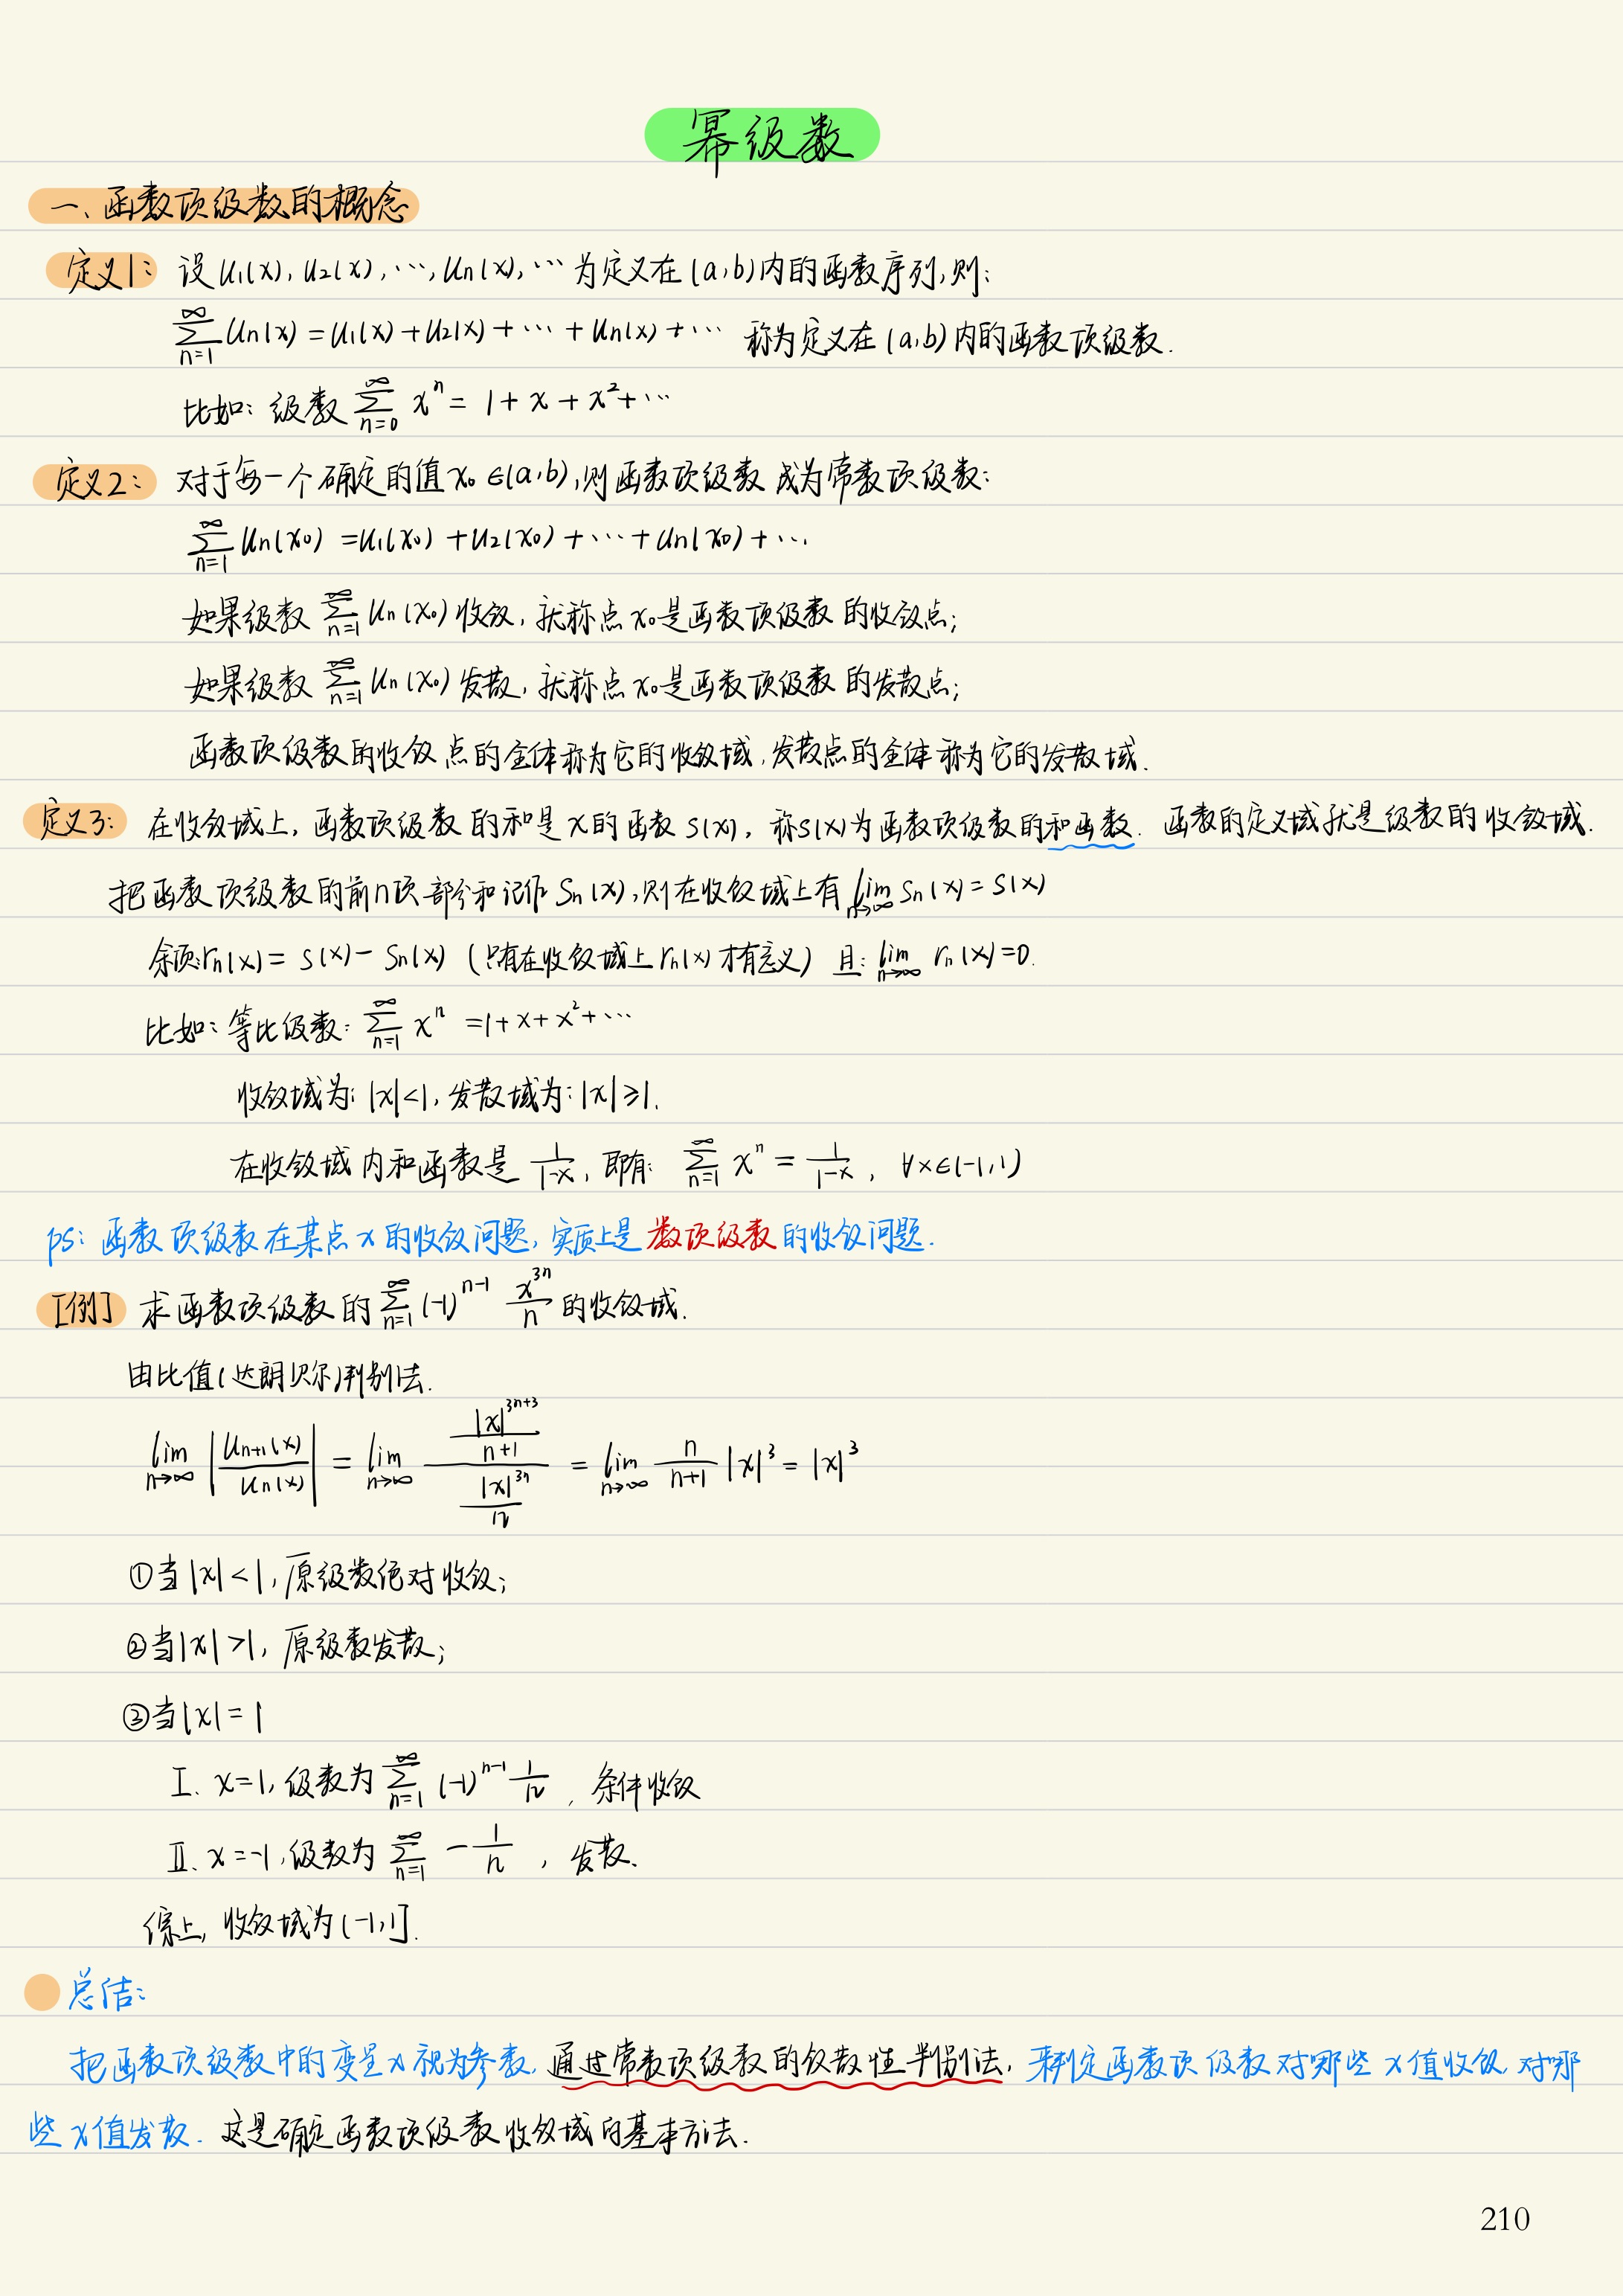 幂级数
一、函数项级数的概念
定义1: 设 u₁(x), u₂(x), ⋯, uₙ(x), ⋯ 为定义在(a,b)内的函数序列,则:
∑_{n=1}^{∞} uₙ(x) = u₁(x) + u₂(x) + ⋯ + uₙ(x) + ⋯ 称为定义在(a,b)内的函数项级数.
比如: 级数 ∑_{n=0}^{∞} xⁿ = 1 + x + x² + ⋯
定义2: 对于每一个确定的值x₀∈(a,b),则函数项级数成为常数项级数:
∑_{n=1}^{∞} uₙ(x₀) = u₁(x₀) + u₂(x₀) + ⋯ + uₙ(x₀) + ⋯
如果级数 ∑_{n=1}^{∞} uₙ(x₀)收敛,就称点x₀是函数项级数的收敛点;
如果级数 ∑_{n=1}^{∞} uₙ(x₀)发散,就称点x₀是函数项级数的发散点;
函数项级数的收敛点的全体称为它的收敛域,发散点的全体称为它的发散域.
定义3: 在收敛域上,函数项级数的和是x的函数s(x),称s(x)为函数项级数的和函数. 函数的定义域就是级数的收敛域.
把函数项级数的前n项部分和记作Sₙ(x),则在收敛域上有 lim_{n→∞} Sₙ(x) = S(x)
余项:rₙ(x) = S(x) − Sₙ(x) (只有在收敛域上rₙ(x)才有意义) 且: lim_{n→∞} rₙ(x) = 0.
比如: 等比级数: ∑_{n=1}^{∞} xⁿ = 1 + x + x² + ⋯
收敛域为: |x|<1, 发散域为: |x|≥1.
在收敛域内和函数是 1/(1−x), 即有: ∑_{n=1}^{∞} xⁿ = 1/(1−x), ∀x∈(−1,1)
ps: 函数项级数在某点x的收敛问题,实质上是数项级数的收敛问题.
[例] 求函数项级数的 ∑_{n=1}^{∞} (−1)^{n−1} x^{3n}/n 的收敛域.
由比值(达朗贝尔)判别法.
lim_{n→∞} |uₙ₊₁(x)/uₙ(x)| = lim_{n→∞} (|x|^{3n+3}/(n+1))/(|x|^{3n}/n) = lim_{n→∞} n/(n+1) |x|³ = |x|³
①当|x|<1,原级数绝对收敛;
②当|x|>1,原级数发散;
③当|x|=1
Ⅰ. x=1,级数为 ∑_{n=1}^{∞} (−1)^{n−1} 1/n, 条件收敛
Ⅱ. x=−1,级数为 ∑_{n=1}^{∞} −1/n, 发散.
综上,收敛域为(−1,1].
总结:
把函数项级数中的变量x视为参数,通过常数项级数的敛散性判别法,来判定函数项级数对哪些x值收敛,对哪
些x值发散. 这是确定函数项级数收敛域的基本方法.
210